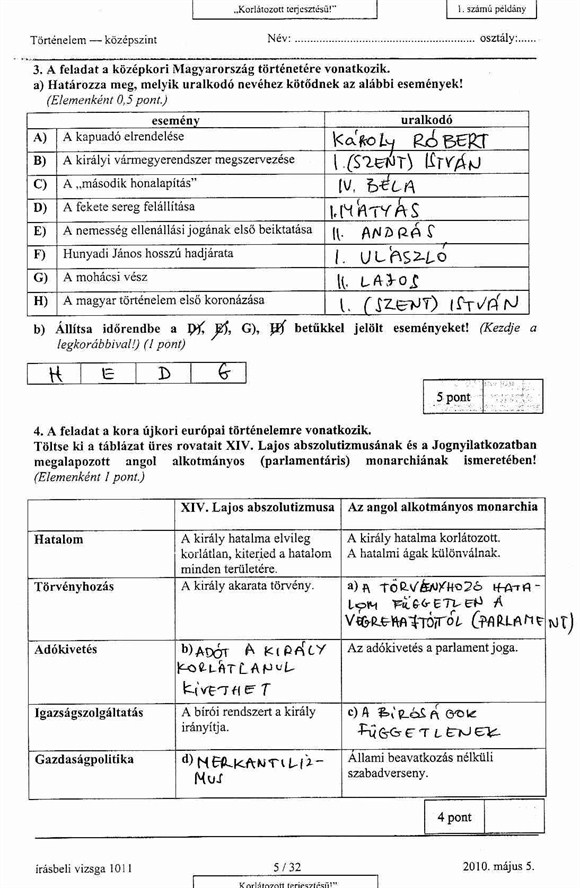 „Korlátozott terjesztésű!”
1. számú példány
Történelem — középszint
Név: ........................................................ osztály:......
3. A feladat a középkori Magyarország történetére vonatkozik.
a) Határozza meg, melyik uralkodó nevéhez kötődnek az alábbi események!
(Elemenként 0,5 pont.)
esemény uralkodó
A) A kapuadó elrendelése KÁROLY RÓBERT
B) A királyi vármegyerendszer megszervezése I. (SZENT) ISTVÁN
C) A „második honalapítás” IV. BÉLA
D) A fekete sereg felállítása I. MÁTYÁS
E) A nemesség ellenállási jogának első beiktatása II. ANDRÁS
F) Hunyadi János hosszú hadjárata I. ULÁSZLÓ
G) A mohácsi vész II. LAJOS
H) A magyar történelem első koronázása I. (SZENT) ISTVÁN
b) Állítsa időrendbe a D), E), G), H) betűkkel jelölt eseményeket! (Kezdje a
legkorábbival!) (1 pont)
H E D G
5 pont
4. A feladat a kora újkori európai történelemre vonatkozik.
Töltse ki a táblázat üres rovatait XIV. Lajos abszolutizmusának és a Jognyilatkozatban
megalapozott angol alkotmányos (parlamentáris) monarchiának ismeretében!
(Elemenként 1 pont.)
XIV. Lajos abszolutizmusa Az angol alkotmányos monarchia
Hatalom
A király hatalma elvileg
korlátlan, kiterjed a hatalom
minden területére.
A király hatalma korlátozott.
A hatalmi ágak különválnak.
Törvényhozás
A király akarata törvény.
a) A TÖRVÉNYHOZÓ HATA-
LOM FÜGGETLEN A
VÉGREHAJTÓTÓL (PARLAMENT)
Adókivetés
b) ADÓT A KIRÁLY
KORLÁTLANUL
KIVETHET
Az adókivetés a parlament joga.
Igazságszolgáltatás
A bírói rendszert a király
irányítja.
c) A BÍRÓSÁGOK
FÜGGETLENEK
Gazdaságpolitika
d) MERKANTILIZ-
MUS
Állami beavatkozás nélküli
szabadverseny.
4 pont
írásbeli vizsga 1011
5 / 32
2010. május 5.
Korlátozott terjesztésű!”